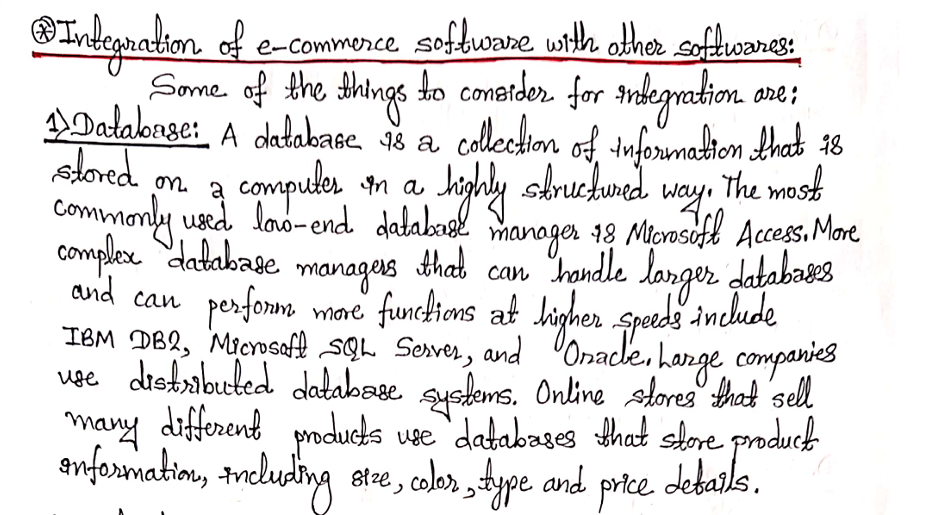 ⊛ Integration of e-commerce software with other softwares:
Some of the things to consider for integration are:
1) Database: A database is a collection of information that is
stored on a computer in a highly structured way. The most
commonly used low-end database manager is Microsoft Access. More
complex database managers that can handle larger databases
and can perform more functions at higher speeds include
IBM DB2, Microsoft SQL Server, and Oracle. Large companies
use distributed database systems. Online stores that sell
many different products use databases that store product
information, including size, color, type and price details.